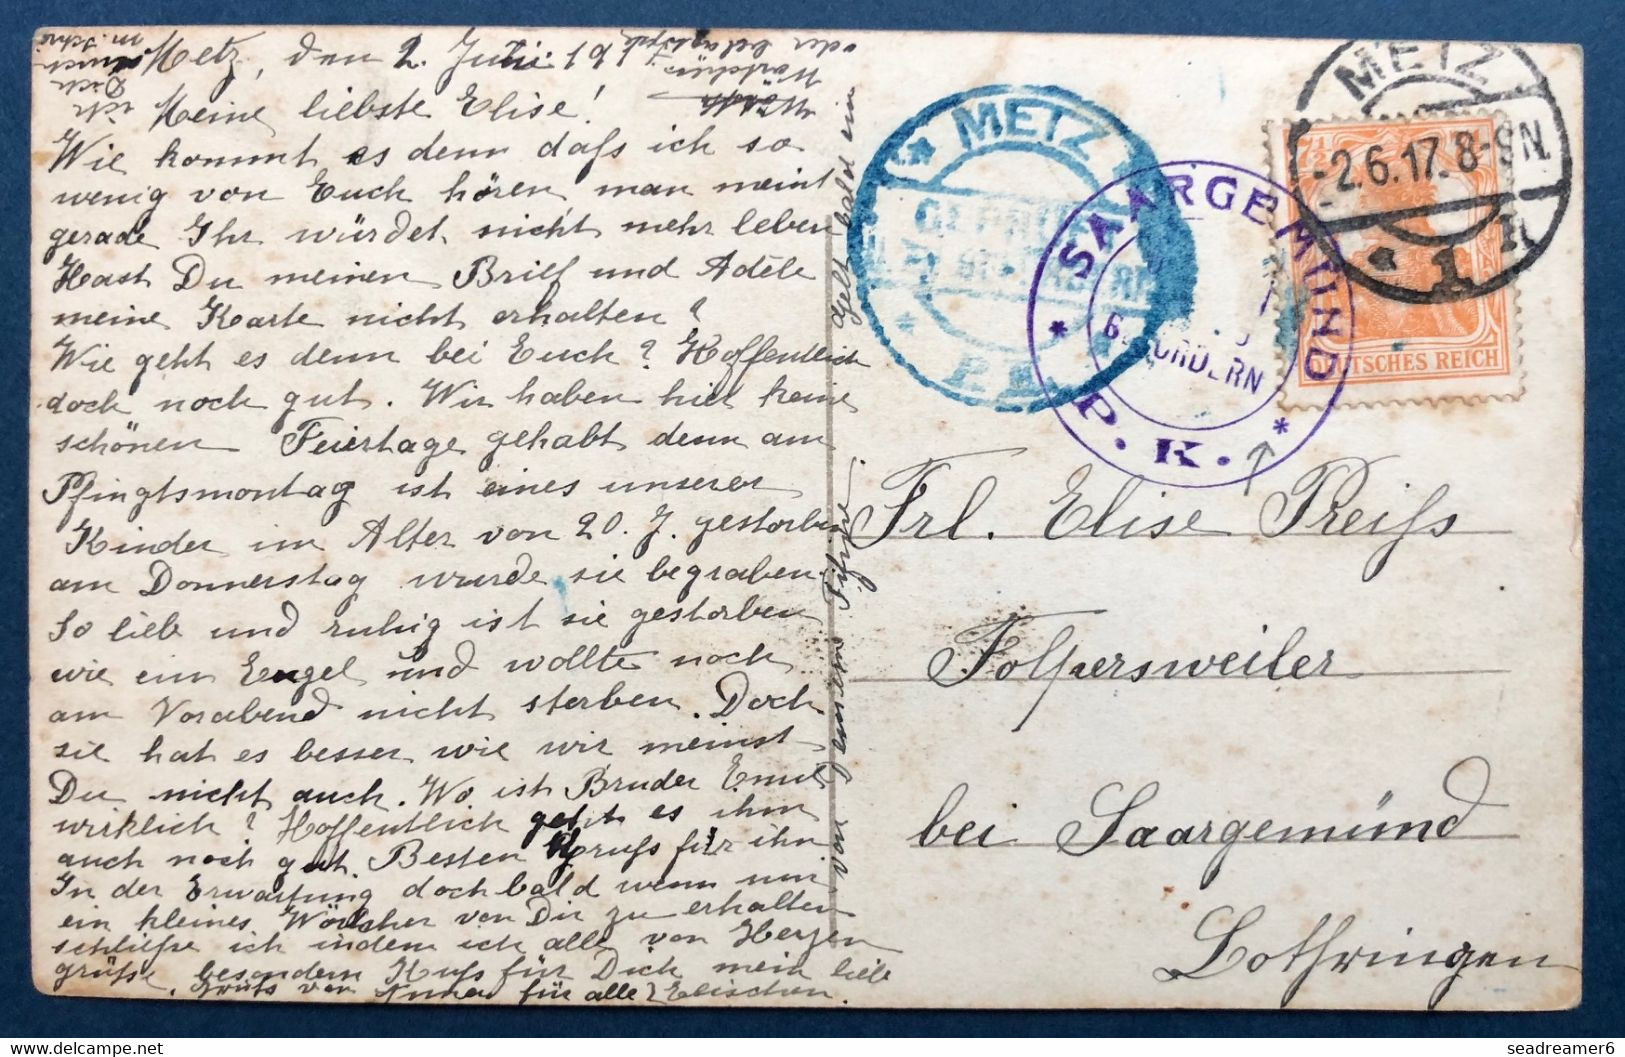 Metz, den 2. Juni 191
Meine liebste Elise!
Wie kommt es denn dafs ich so
wenig von Euch hören, man meint
gerade Ihr würdet nicht mehr leben
Hast Du meinen Brief und Adèle
meine Karte nicht erhalten?
Wie geht es denn bei Euch? Hoffentlich
doch noch gut. Wir haben hier keine
schönen Feiertage gehabt denn am
Pfingtsmontag ist eines unserer
Kinder im Alter von 20. J. gestorben
am Donnerstag wurde sie begraben.
So lieb und ruhig ist sie gestorben
wie ein Engel und wollte noch
am Vorabend nicht sterben. Doch
sie hat es besser wie wir meinst
Du nicht auch. Wo ist Bruder Emil
wirklich? Hoffentlich geht es ihm
auch noch gut. Besten Grufs für ihn
In der Erwartung doch bald wenn nur
ein kleines Wörtchen von Dir zu erhalten
schliefse ich indem ich alle von Herzen
grüfse, besondern Kufs für Dich mein liebe
Grufs von für alle Elischen.
Wörtchen
oder
ich
Dich
Gelt bald ein
von
METZ
P. K.
SAARGEMÜND
P. K.
BEFÖRDERN
METZ
-2.6.17.8-9N.
* 1 n
7 1/2
DEUTSCHES REICH
Frl. Elise Preifs
Folpersweiler
bei Saargemünd
Lothringen
https://www.delcampe.net
seadreamer6